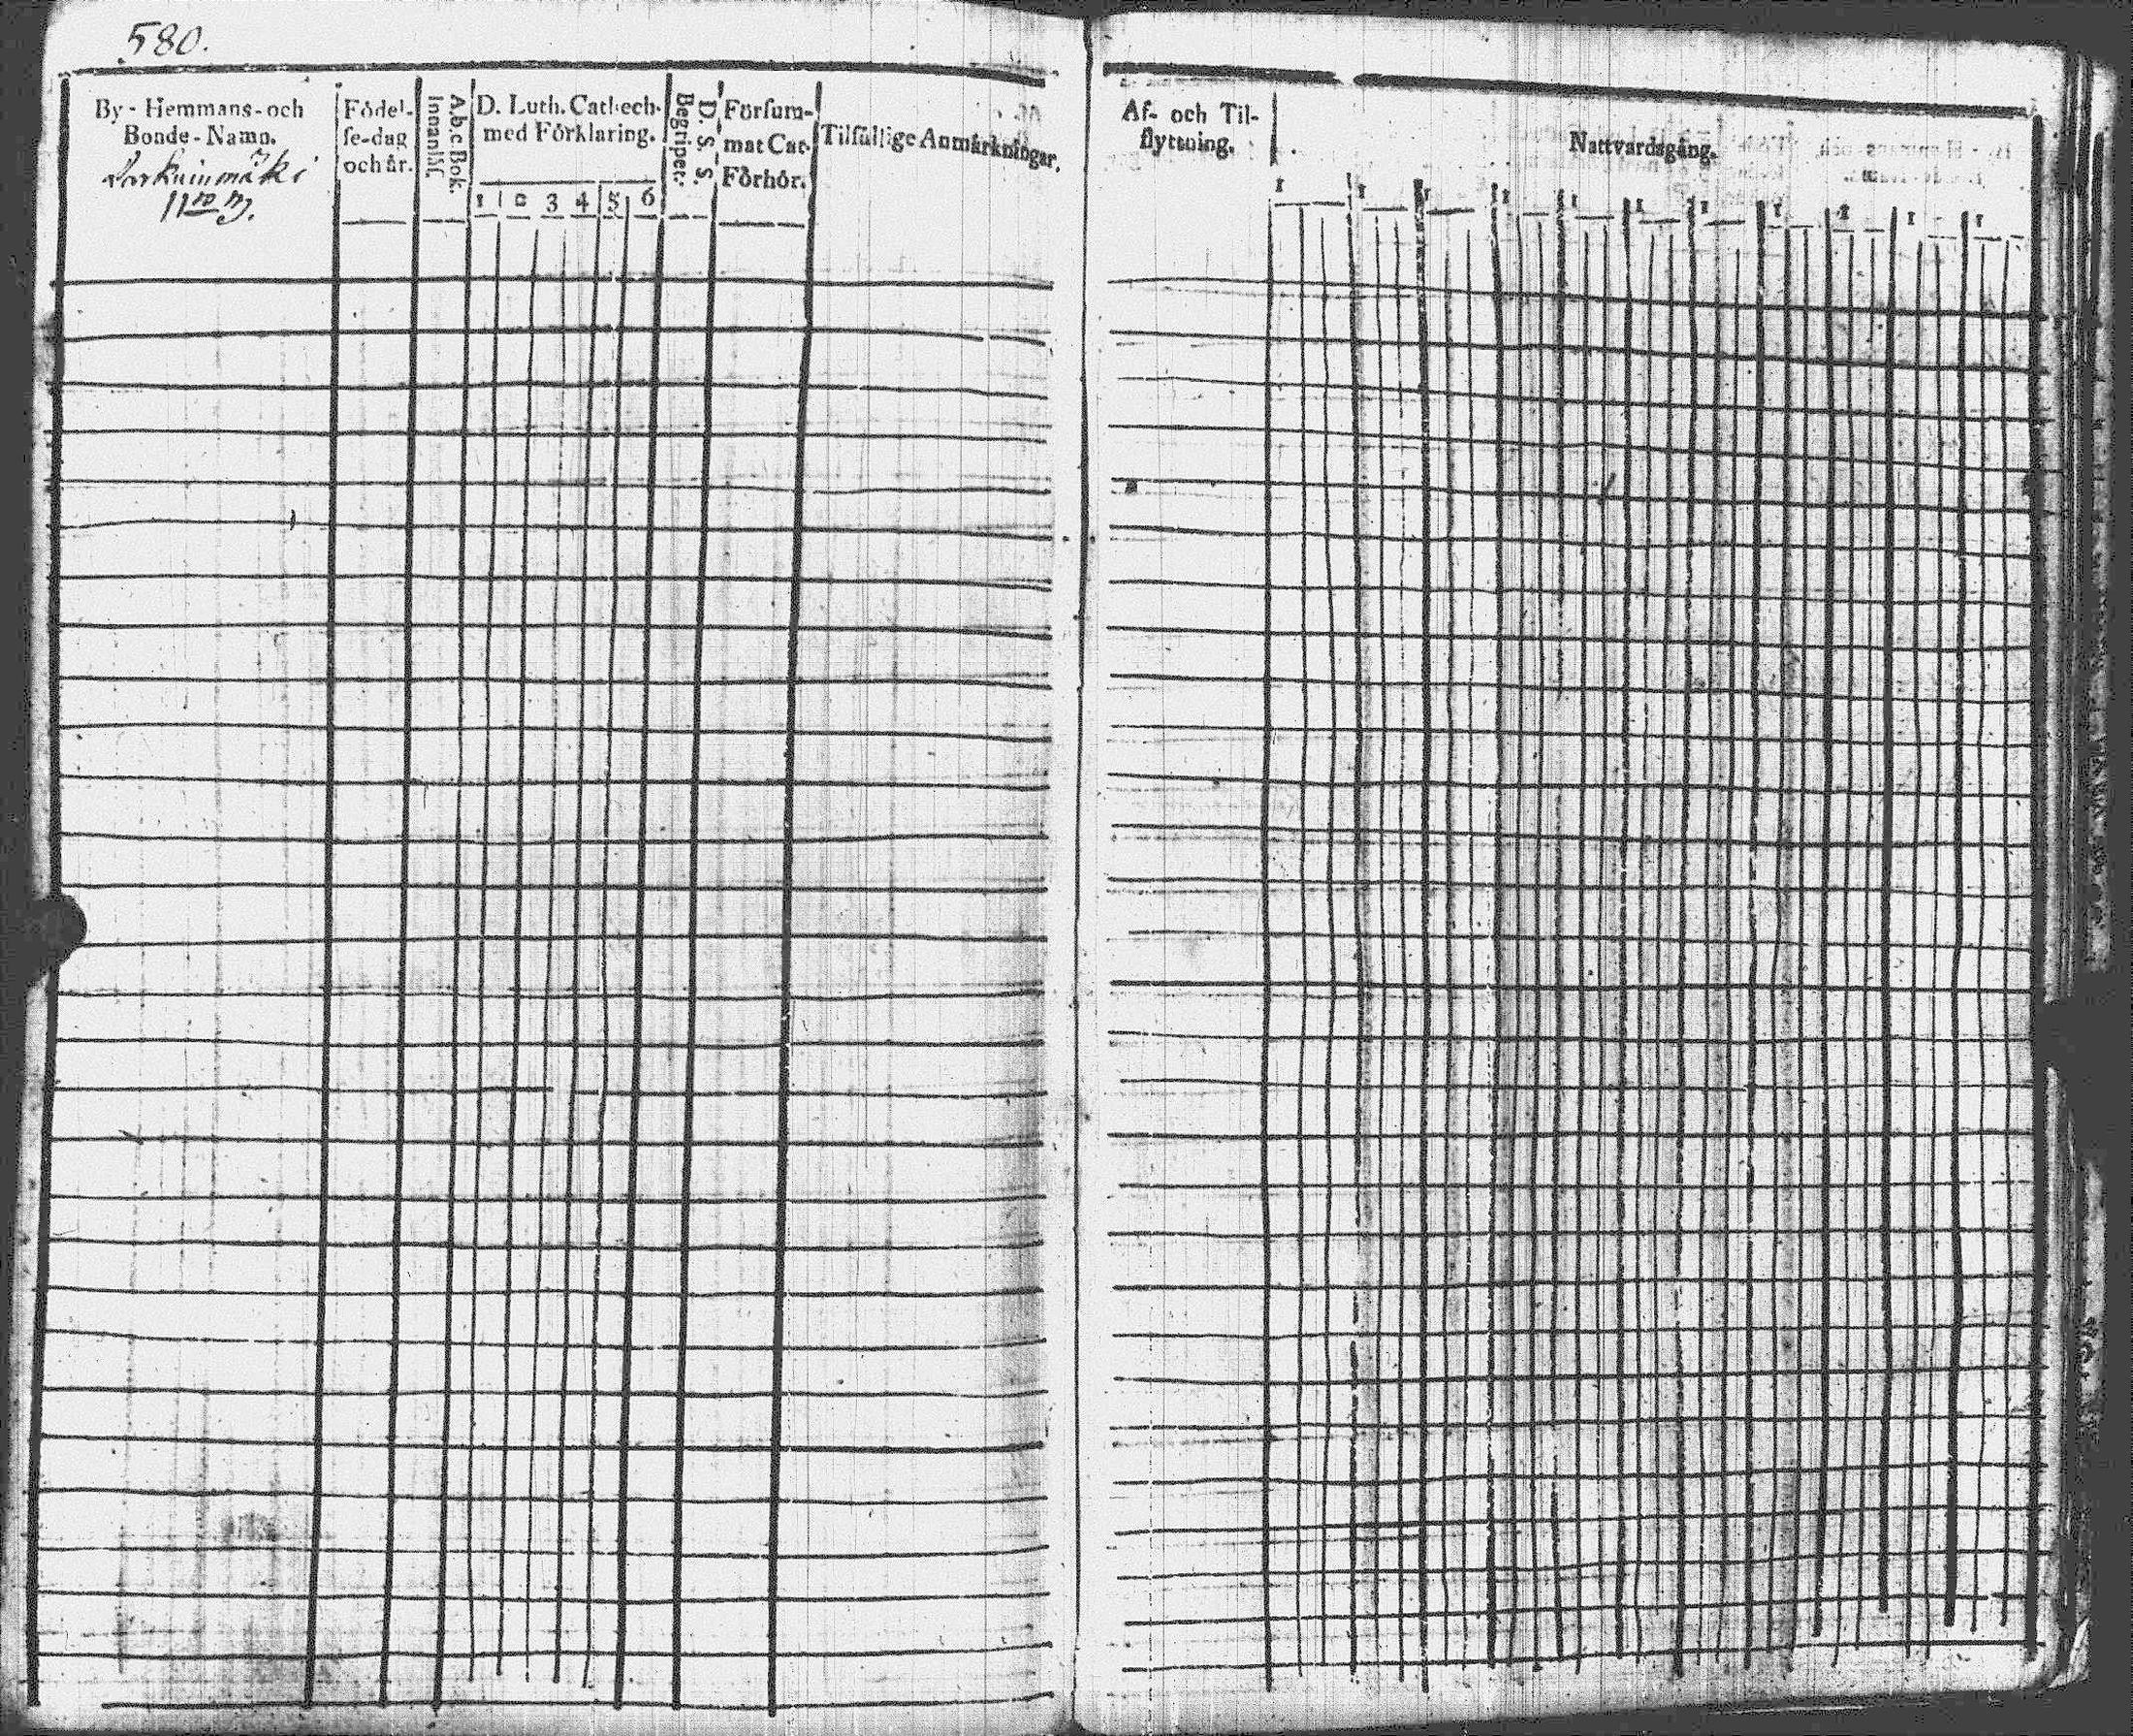 580.
By - Hemmans - och
Bonde - Namn.
11
Födel-
se-dag
och år.
A.b.c Bok.
Innanläs.
D. Luth. Cathech.
med Förklaring.
1 2 3 4 5 6
D. S. S.
Begripet.
Försum-
mat Cat.
Förhör.
Tilfällige Anmärkningar.
Af- och Til-
flyttning.
Nattvardsgång.
1 1 1 1 1 1 1 1 1 1 1